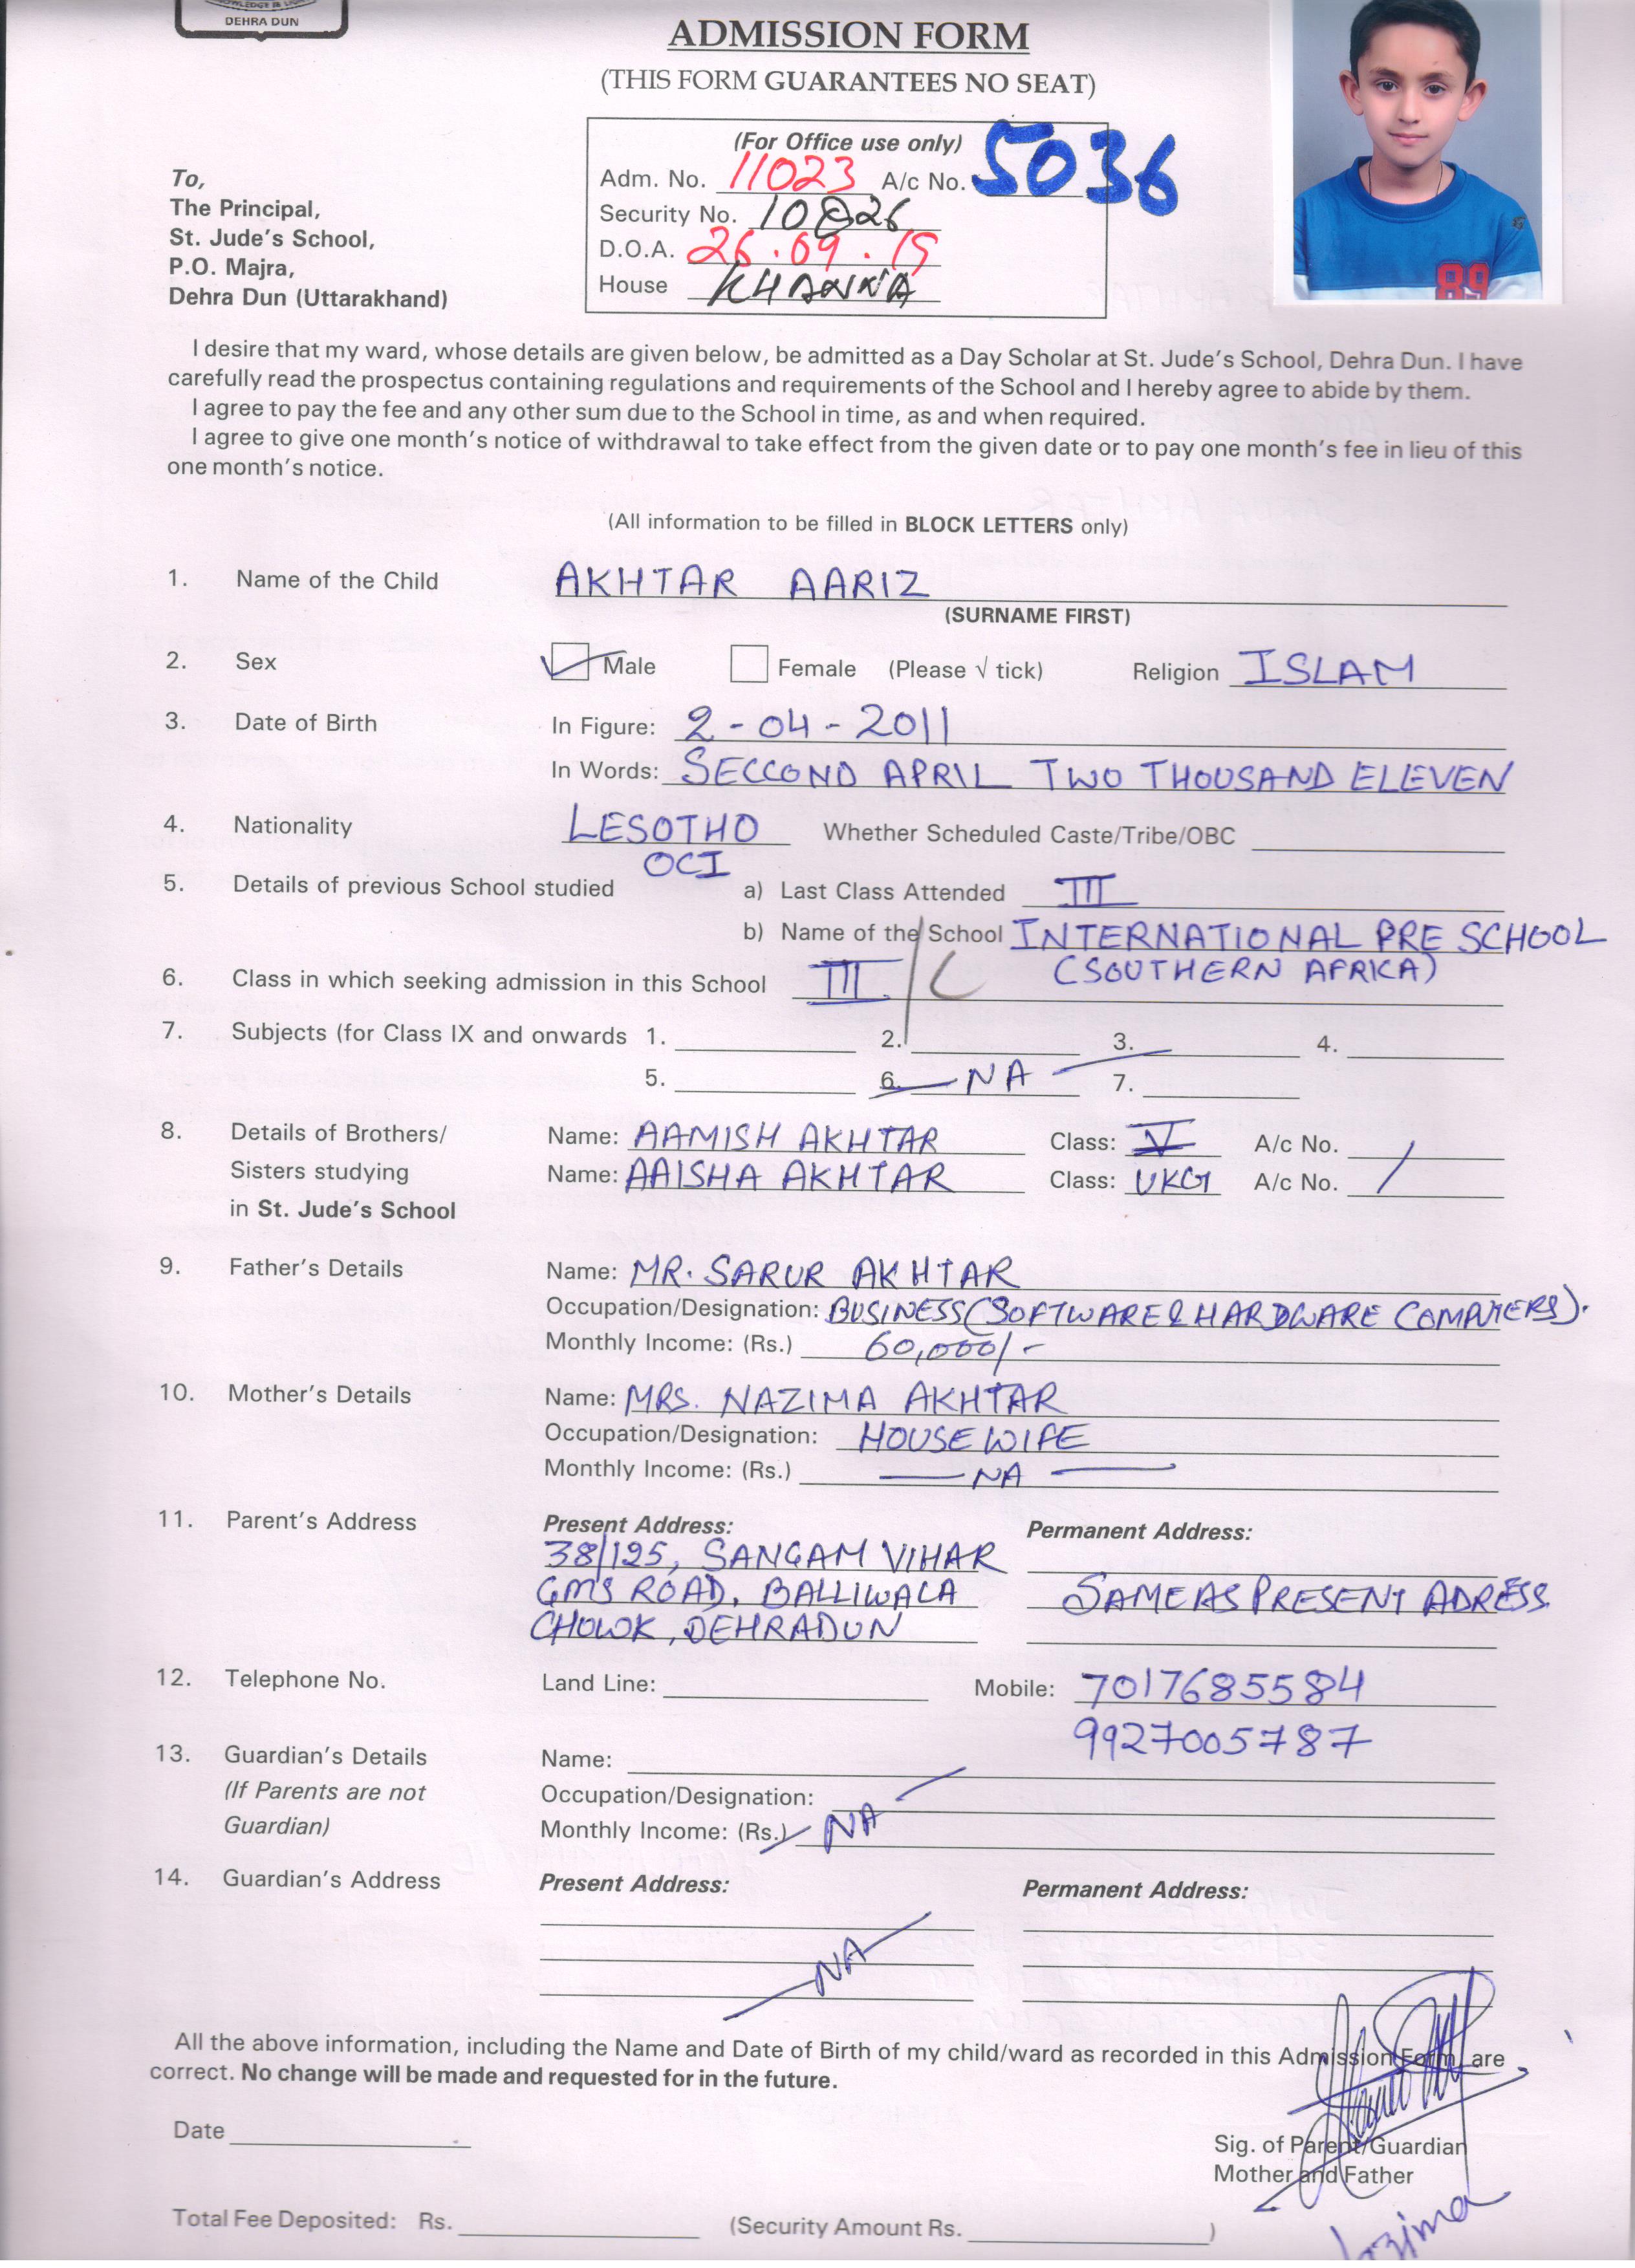 DEHRA DUN
ADMISSION FORM
(THIS FORM GUARANTEES NO SEAT)
(For Office use only)
Adm. No. 11023 A/c No. 5036
Security No. 10826
D.O.A. 26.09.19
House KHANNA
To,
The Principal,
St. Jude's School,
P.O. Majra,
Dehra Dun (Uttarakhand)
89
I desire that my ward, whose details are given below, be admitted as a Day Scholar at St. Jude's School, Dehra Dun. I have
carefully read the prospectus containing regulations and requirements of the School and I hereby agree to abide by them.
I agree to pay the fee and any other sum due to the School in time, as and when required.
I agree to give one month's notice of withdrawal to take effect from the given date or to pay one month's fee in lieu of this
one month's notice.
(All information to be filled in BLOCK LETTERS only)
1. Name of the Child AKHTAR AARIZ
(SURNAME FIRST)
2. Sex Male Female (Please √ tick) Religion ISLAM
3. Date of Birth In Figure: 2-04-2011
In Words: SECCOND APRIL TWO THOUSAND ELEVEN
4. Nationality LESOTHO Whether Scheduled Caste/Tribe/OBC
OCI
5. Details of previous School studied a) Last Class Attended III
b) Name of the School INTERNATIONAL PRE SCHOOL
(SOUTHERN AFRICA)
6. Class in which seeking admission in this School III / C
7. Subjects (for Class IX and onwards 1. 2. 3. 4.
5. 6. NA 7.
8. Details of Brothers/ Name: AAMISH AKHTAR Class: V A/c No. /
Sisters studying Name: AAISHA AKHTAR Class: UKG A/c No. /
in St. Jude's School
9. Father's Details Name: MR. SARUR AKHTAR
Occupation/Designation: BUSINESS (SOFTWARE & HARDWARE COMPUTERS).
Monthly Income: (Rs.) 60,000/-
10. Mother's Details Name: MRS. NAZIMA AKHTAR
Occupation/Designation: HOUSE WIFE
Monthly Income: (Rs.) NA
11. Parent's Address Present Address: Permanent Address:
38/125, SANGAM VIHAR
GMS ROAD, BALLIWALA SAME AS PRESENT ADRESS
CHOWK, DEHRADUN
12. Telephone No. Land Line: Mobile: 7017685584
9927005787
13. Guardian's Details Name:
(If Parents are not Occupation/Designation:
Guardian) Monthly Income: (Rs.) NA
14. Guardian's Address Present Address: Permanent Address:
NA
All the above information, including the Name and Date of Birth of my child/ward as recorded in this Admission Form are
correct. No change will be made and requested for in the future.
Date
Sig. of Parent/Guardian
Mother and Father
Total Fee Deposited: Rs. (Security Amount Rs. )